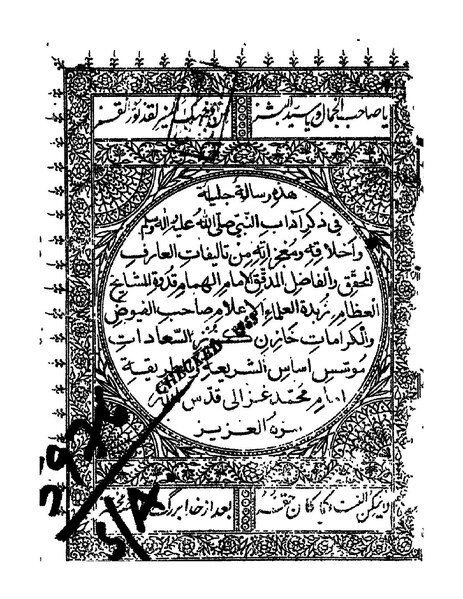 يا صاحب الجمال ويا سيد البشر
من وجهك المنير لقد نور القمر
هذه رسالة جليلة
في ذكر آداب النبي صلى الله عليه واله وسلم
واخلاقه ومعجزاته من تاليفات العارف
المحقق والفاضل المدقق الامام الهمام قدوة المشايخ
العظام زبدة العلماء الاعلام صاحب الفيوض
والكرامات خازن كنوز السعادات
موسس اساس الشريعة والطريقة
امام محمد غزالى قدس الله
سره العزيز
CHECKED
لا يمكن الثناء كما كان حقه
بعد از خدا بزرگ